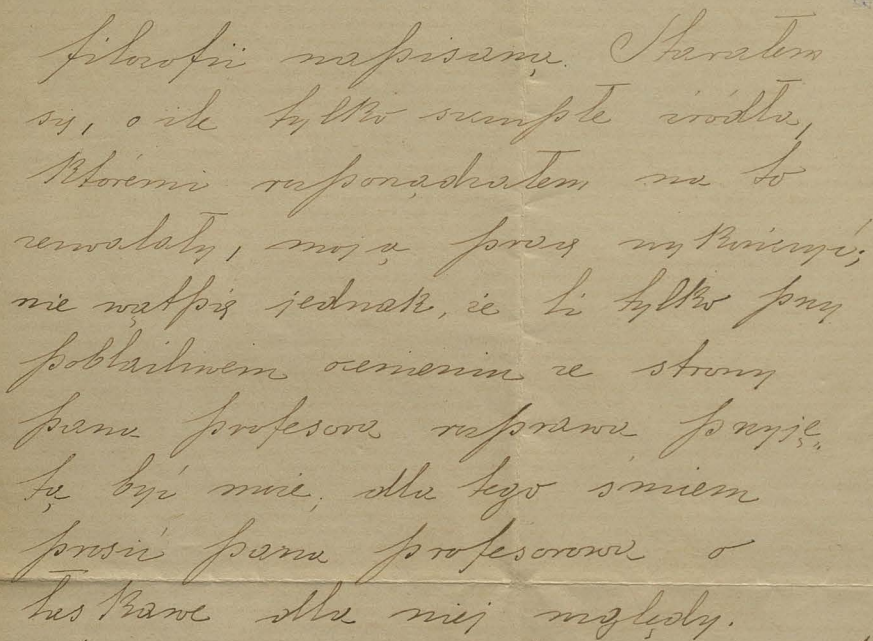 filozofii napisaną. Starałem
się, o ile tylko szczupłe źródła,
któremi rozporządzałem na to
zezwalały, moją pracę wykończyć;
nie wątpię jednak, że li tylko przy
pobłażliwem ocenieniu ze strony
pana profesora rozprawa przyję„
tą być może, dla tego śmiem
prosić pana profesorowa o
łaskawe dla niej względy.